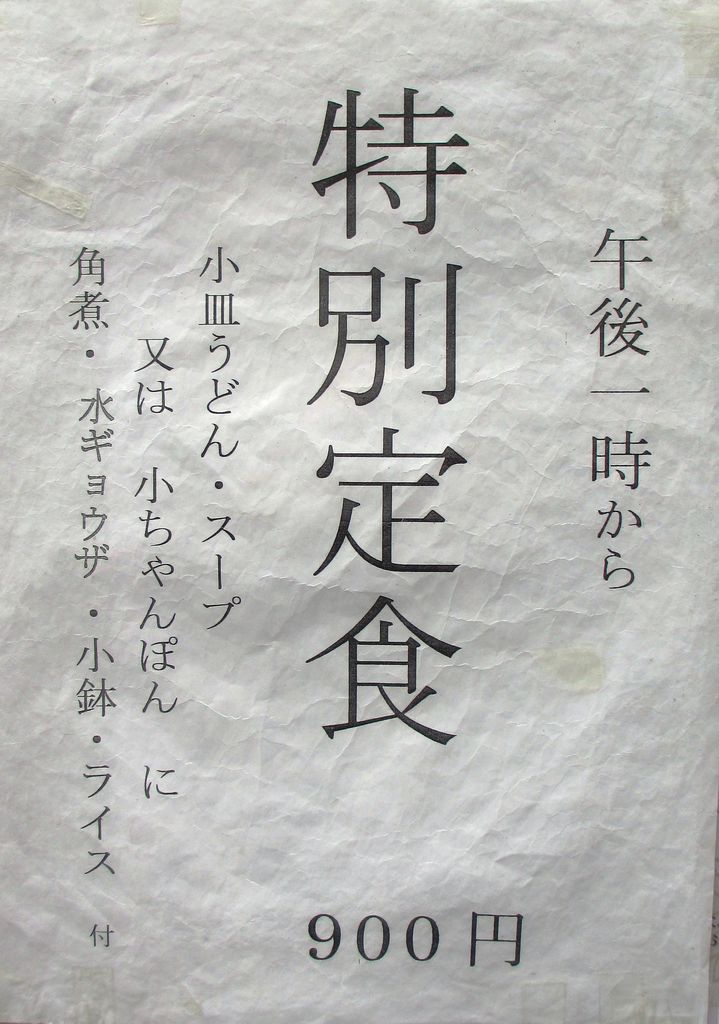 午後一時から
特別定食
900円
小皿うどん・スープ
又は 小ちゃんぽん に
角煮・水ギョウザ・小鉢・ライス 付